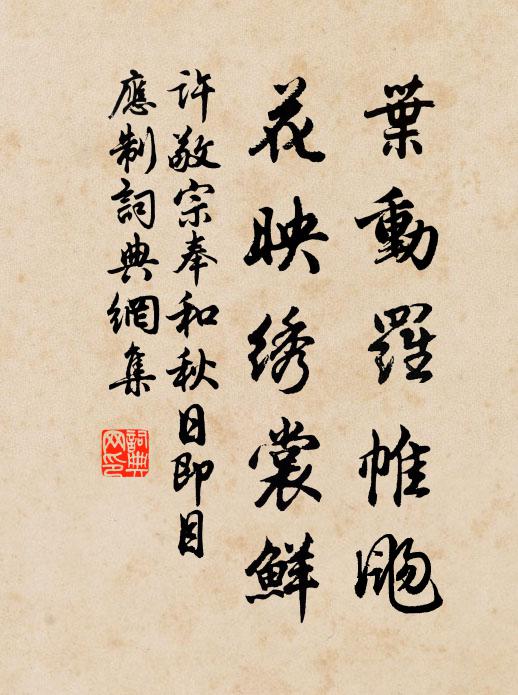 葉動羅帷颺
花映绣裳鮮
許敬宗奉和秋日即目
應制詞典網集
詞典网印